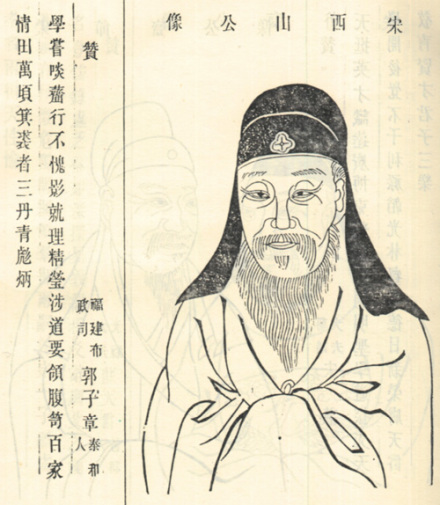 宋西山公像
贊
福建布政司郭子章泰和人
學嘗啖薺行不愧影就理精瑩涉道要領腹笥百家
情田萬頃箕裘者三丹青彪炳